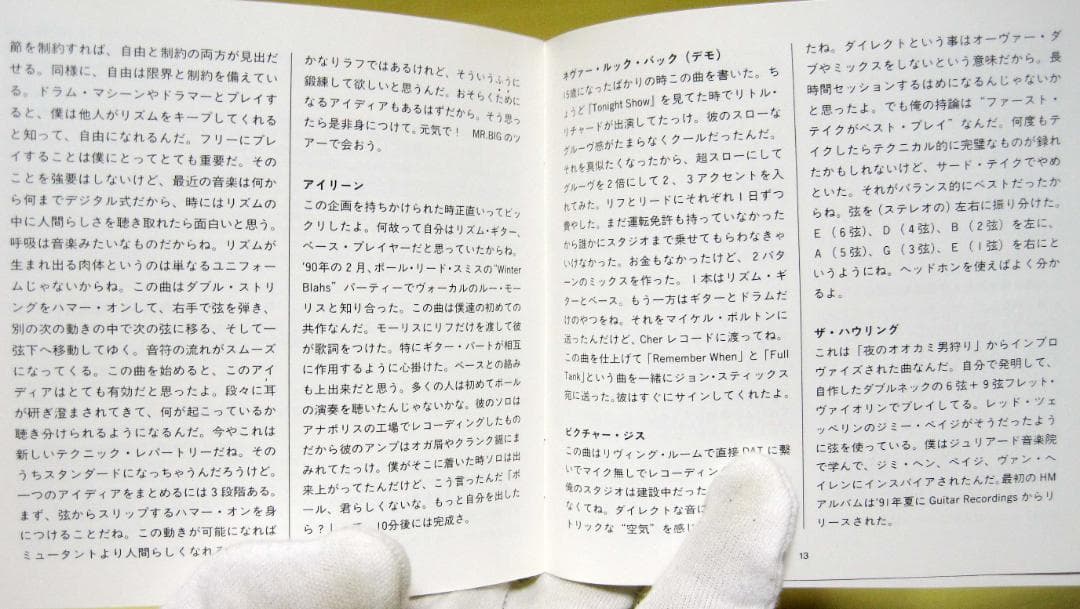 節を制約すれば、自由と制約の両方が見出だ
せる。同様に、自由は限界と制約を備えてい
る。ドラム・マシーンやドラマーとプレイす
ると、僕は他人がリズムをキープしてくれる
と知って、自由になれるんだ。フリーにプレ
イすることは僕にとってとても重要だ。その
ことを強要はしないけど、最近の音楽は何か
ら何までデジタル式だから、時にはリズムの
中に人間らしさを聴き取れたら面白いと思う。
呼吸は音楽みたいなものだからね。リズムが
生まれ出る肉体というのは単なるユニフォー
ムじゃないからね。この曲はダブル・ストリ
ングをハマー・オンして、右手で弦を弾き、
別の次の動きの中で次の弦に移る、そして一
弦下へ移動してゆく。音符の流れがスムーズ
になってくる。この曲を始めると、このアイ
ディアはとても有効だと思ったよ。段々に耳
が研ぎ澄まされてきて、何が起こっているか
聴き分けられるようになるんだ。今やこれは
新しいテクニック・レパートリーだね。その
うちスタンダードになっちゃうんだろうけど。
一つのアイディアをまとめるには3段階ある。
まず、弦からスリップするハマー・オンを身
につけることだね。この動きが可能になれば
ミュータントより人間らしくなれる
かなりラフではあるけれど、そういうふうに
鍛練して欲しいと思うんだ。おそらくために
なるアイディアもあるはずだから。そう思っ
たら是非身につけて。元気で! MR.BIGのツ
アーで会おう。
アイリーン
この企画を持ちかけられた時正直いってビッ
クリしたよ。何故って自分はリズム・ギター、
ベース・プレイヤーだと思っていたからね。
'90年の2月、ポール・リード・スミスの"Winter
Blahs" パーティーでヴォーカルのルー・モー
リスと知り合った。この曲は僕達の初めての
共作なんだ。モーリスにリフだけを渡して彼
が歌詞をつけた。特にギター・パートが相互
に作用するように心掛けた。ベースとの絡み
も上出来だと思う。多くの人は初めてポール
の演奏を聴いたんじゃないかな。彼のソロは
アナポリスの工場でレコーディングしたもの
だから彼のアンプはオガ屑やクランク鋸にま
みれてたっけ。僕がそこに着いた時ソロは出
来上がってたんだけど、こう言ったんだ「ポ
ール、君らしくないな。もっと自分を出した
ら?
10分後には完成さ。
ネヴァー・ルック・バック(デモ)
15歳になったばかりの時この曲を書いた。ち
ょうど『Tonight Show』を見てた時でリトル・
リチャードが出演してたっけ。彼のスローな
グルーヴ感がたまらなくクールだったんだ。
それを真似たくなったから、超スローにして
グルーヴを2倍にして2、3アクセントを入
れてみた。リフとリードにそれぞれ1日ずつ
費やした。まだ運転免許も持っていなかった
から誰かにスタジオまで乗せてもらわなきゃ
いけなかった。お金もなかったけど、2パタ
ーンのミックスを作った。1本はリズム・ギ
ターとベース。もう一方はギターとドラムだ
けのやつをね。それをマイケル・ボルトンに
送ったんだけど、Cher レコードに渡してね。
この曲を仕上げて「Remember When」と「Full
Tank」という曲を一緒にジョン・スティックス
宛に送った。彼はすぐにサインしてくれたよ。
ピクチャー・ジス
この曲はリヴィング・ルームで直接DATに繫
いでマイク無しでレコーディン
俺のスタジオは建設中だった
なくてね。ダイレクトな音に
トリックな "空気" を感じ
たね。ダイレクトという事はオーヴァー・ダ
ブやミックスをしないという意味だから。長
時間セッションするはめになるんじゃないか
と思ったよ。でも俺の持論は "ファースト・
テイクがベスト・プレイ" なんだ。何度もテ
イクしたらテクニカル的に完璧なものが録れ
たかもしれないけど、サード・テイクでやめ
といた。それがバランス的にベストだったか
らね。弦を(ステレオの)左右に振り分けた。
E(6弦)、D(4弦)、B(2弦)を左に、
A(5弦)、G(3弦)、E(1弦)を右にと
いうようにね。ヘッドホンを使えばよく分か
るよ。
ザ・ハウリング
これは「夜のオオカミ男狩り」からインプロ
ヴァイズされた曲なんだ。自分で発明して、
自作したダブルネックの6弦+9弦フレット・
ヴァイオリンでプレイしてる。レッド・ツェ
ッペリンのジミー・ペイジがそうだったよう
に弦を使っている。僕はジュリアード音楽院
で学んで、ジミ・ヘン、ペイジ、ヴァン・ヘ
イレンにインスパイアされたんだ。最初のHM
アルバムは'91年夏にGuitar Recordings からリ
リースされた。
13